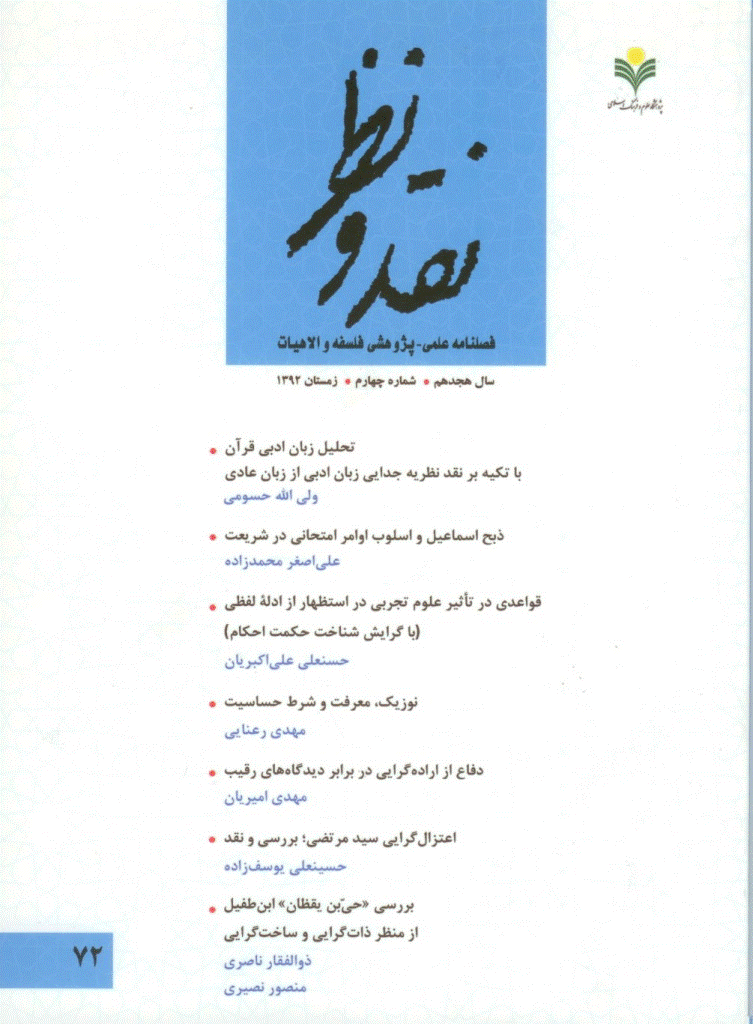 پژوهشگاه علوم و فرهنگ اسلامی
نقد و نظر
فصلنامه علمی-پژوهشی فلسفه و الاهیات
سال هجدهم • شماره چهارم • زمستان ۱۳۹۲
تحلیل زبان ادبی قرآن
با تکیه بر نقد نظریه جدایی زبان ادبی از زبان عادی
ولی الله حسومی
ذبح اسماعیل و اسلوب اوامر امتحانی در شریعت
علی‌اصغر محمدزاده
قواعدی در تأثیر علوم تجربی در استظهار از ادلهٔ لفظی
(با گرایش شناخت حکمت احکام)
حسنعلی علی‌اکبریان
نوزیک، معرفت و شرط حساسیت
مهدی رعنایی
دفاع از اراده‌گرایی در برابر دیدگاه‌های رقیب
مهدی امیریان
اعتزال‌گرایی سید مرتضی؛ بررسی و نقد
حسینعلی یوسف‌زاده
بررسی «حیّ‌بن یقظان» ابن‌طفیل
از منظر ذات‌گرایی و ساخت‌گرایی
ذوالفقار ناصری
منصور نصیری
۷۲